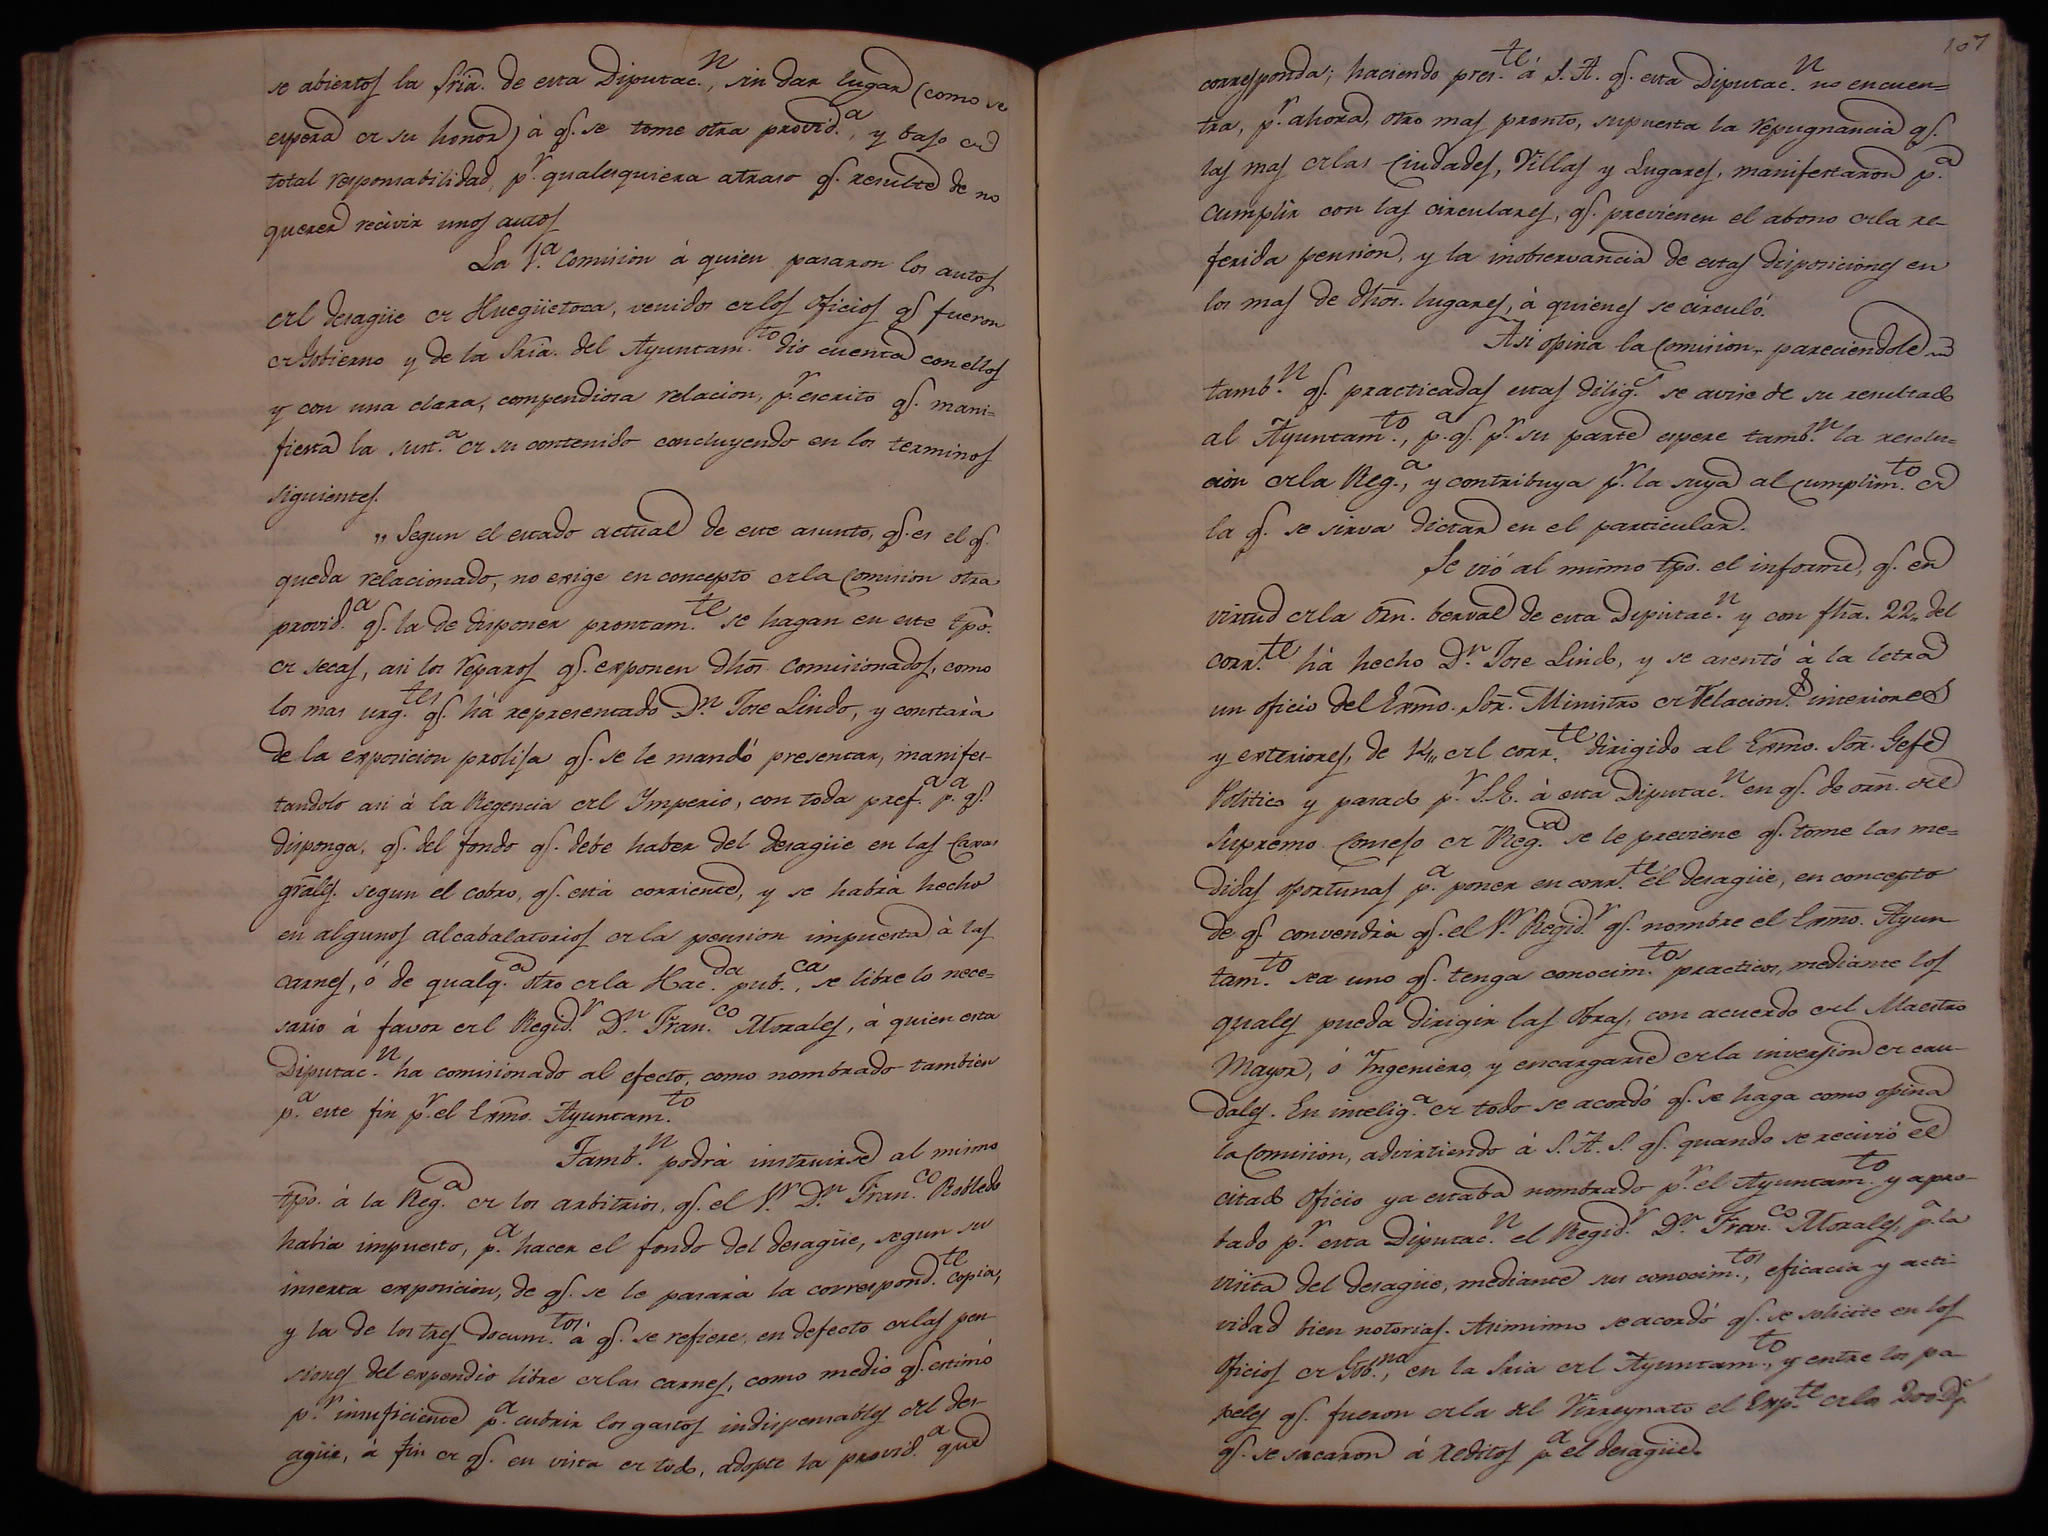 se abiertos la Sría. de esta Diputac.n, sin dar lugar (como se
espera de su honor) á qe. se tome otra provid.a, y bajo su
total responsabilidad, p.r qualesquiera atraso qe. resulte de no
querer recivir unos autos
La 1.a Comision á quien pasaron los autos
del desagüe de Huegüetoca, venidos de los Oficios qe fueron
de Gobierno y de la Sría. del Ayuntam.to dió cuenta con ellos
y con una clara, compendiosa relacion, p.r escrito qe. mani=
fiesta la sust.a de su contenido concluyendo en los terminos
siguientes.
„Segun el estado actual de este asunto, qe. es el qe.
queda relacionado, no exige en concepto de la Comision otra
provid.a qe. la de disponer prontam.te se hagan en este tpo.
de secas, asi los reparos qe. exponen dhos. comisionados, como
los mas urg.tes qe. há representado D.n Jose Lindo, y constará
de la exposicion prolija qe. se le mandó presentar, manifes-
tandolo asi á la Regencia del Ymperio, con toda pref.a p.a qe.
disponga, qe. del fondo qe. debe haber del desagüe en las Caxas
grales. segun el cobro, qe. está corriente, y se habrá hecho
en algunos alcabalatorios de la pension impuesta á las
carnes, ó de qualq.a otro de la Hac.da pub.ca, se libre lo nece=
sario á favor del Regid.r D.n Fran.co Morales, á quien esta
Diputac.n ha comisionado al efecto, como nombrado tambien
p.a este fin p.r el Exmo. Ayuntam.to
Tamb.n podrá instruirse al mismo
tpo. á la Reg.a de los arbitrios, qe. el S.r D.n Fran.co Robledo
habia impuesto, p.a hacer el fondo del desagüe, segun su
inserta exposicion, de qe. se le pasará la correspond.te copia,
y la de los tres docum.tos á qe. se refiere, en defecto de las pen
siones del expendio libre de las carnes, como medio qe. estimó
p.r insuficiente p.a cubrir los gastos indispensables del des-
agüe, á fin de qe. en vista de todo, adopte la provid.a que
107
corresponda; haciendo pres.te á S. A. qe. esta Diputac.n no encuen=
tra, p.r ahora, otro mas pronto, supuesta la repugnancia qe.
las mas de las Ciudades, Villas y Lugares, manifestaron p.a
cumplir con las circulares, qe. previenen el abono de la re-
ferida pension, y la inobservancia de estas disposiciones en
los mas de dhos. lugares, á quienes se circuló.
Asi opina la Comision, pareciendole
tamb.n qe. practicadas estas dilig.s se avise de su resultado
al Ayuntam.to, p.a qe. p.r su parte espere tamb.n la resolu=
cion de la Reg.a, y contribuya p.r la suya al cumplim.to de
la qe. se sirva dictar en el particular.
Se vió al mismo tpo. el informe, qe. en
virtud de la orn. berval de esta Diputac.n y con fha. 22,, del
corr.te há hecho D.n Jose Lindo, y se asentó á la letra
un oficio del Exmo. Sor. Ministro de Relacion.s interiores
y exteriores, de 14,, del corr.te dirigido al Exmo. Sor. Gefe
Politico y pasado p.r S.E. á esta Diputac.n en qe. de orn. del
Supremo Consejo de Reg.a se le previene qe. tome las me=
didas oportunas p.a poner en corr.te el desagüe, en concepto
de qe. convendrá qe. el S.r Regid.r qe. nombre el Exmo. Ayun
tam.to sea uno qe. tenga conocim.tos practicos, mediante los
quales pueda dirigir las obras, con acuerdo del Maestro
Mayor, ó Yngeniero, y encargarse de la inversion de cau-
dales. En intelig.a de todo se acordó qe. se haga como opina
la Comision, advirtiendo á S. A. S. qe. quando se recivió el
citado Oficio ya estaba nombrado p.r el Ayuntam.to y apro-
bado p.r esta Diputac.n el Regid.r D.n Fran.co Morales, p.a la
visita del desagüe, mediante sus conocim.tos, eficacia y acti
vidad bien notorias. Asimismo se acordó qe. se solicite en los
Oficios de Gob.no, en la Sria del Ayuntam.to, y entre los pa
peles qe. fueron de la del Virreynato el Exp.te de los 200 D p.s
qe. se sacaron á reditos p.a el desagüe.